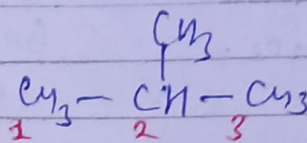 CH3
CH3 - CH - CH3
1 2 3